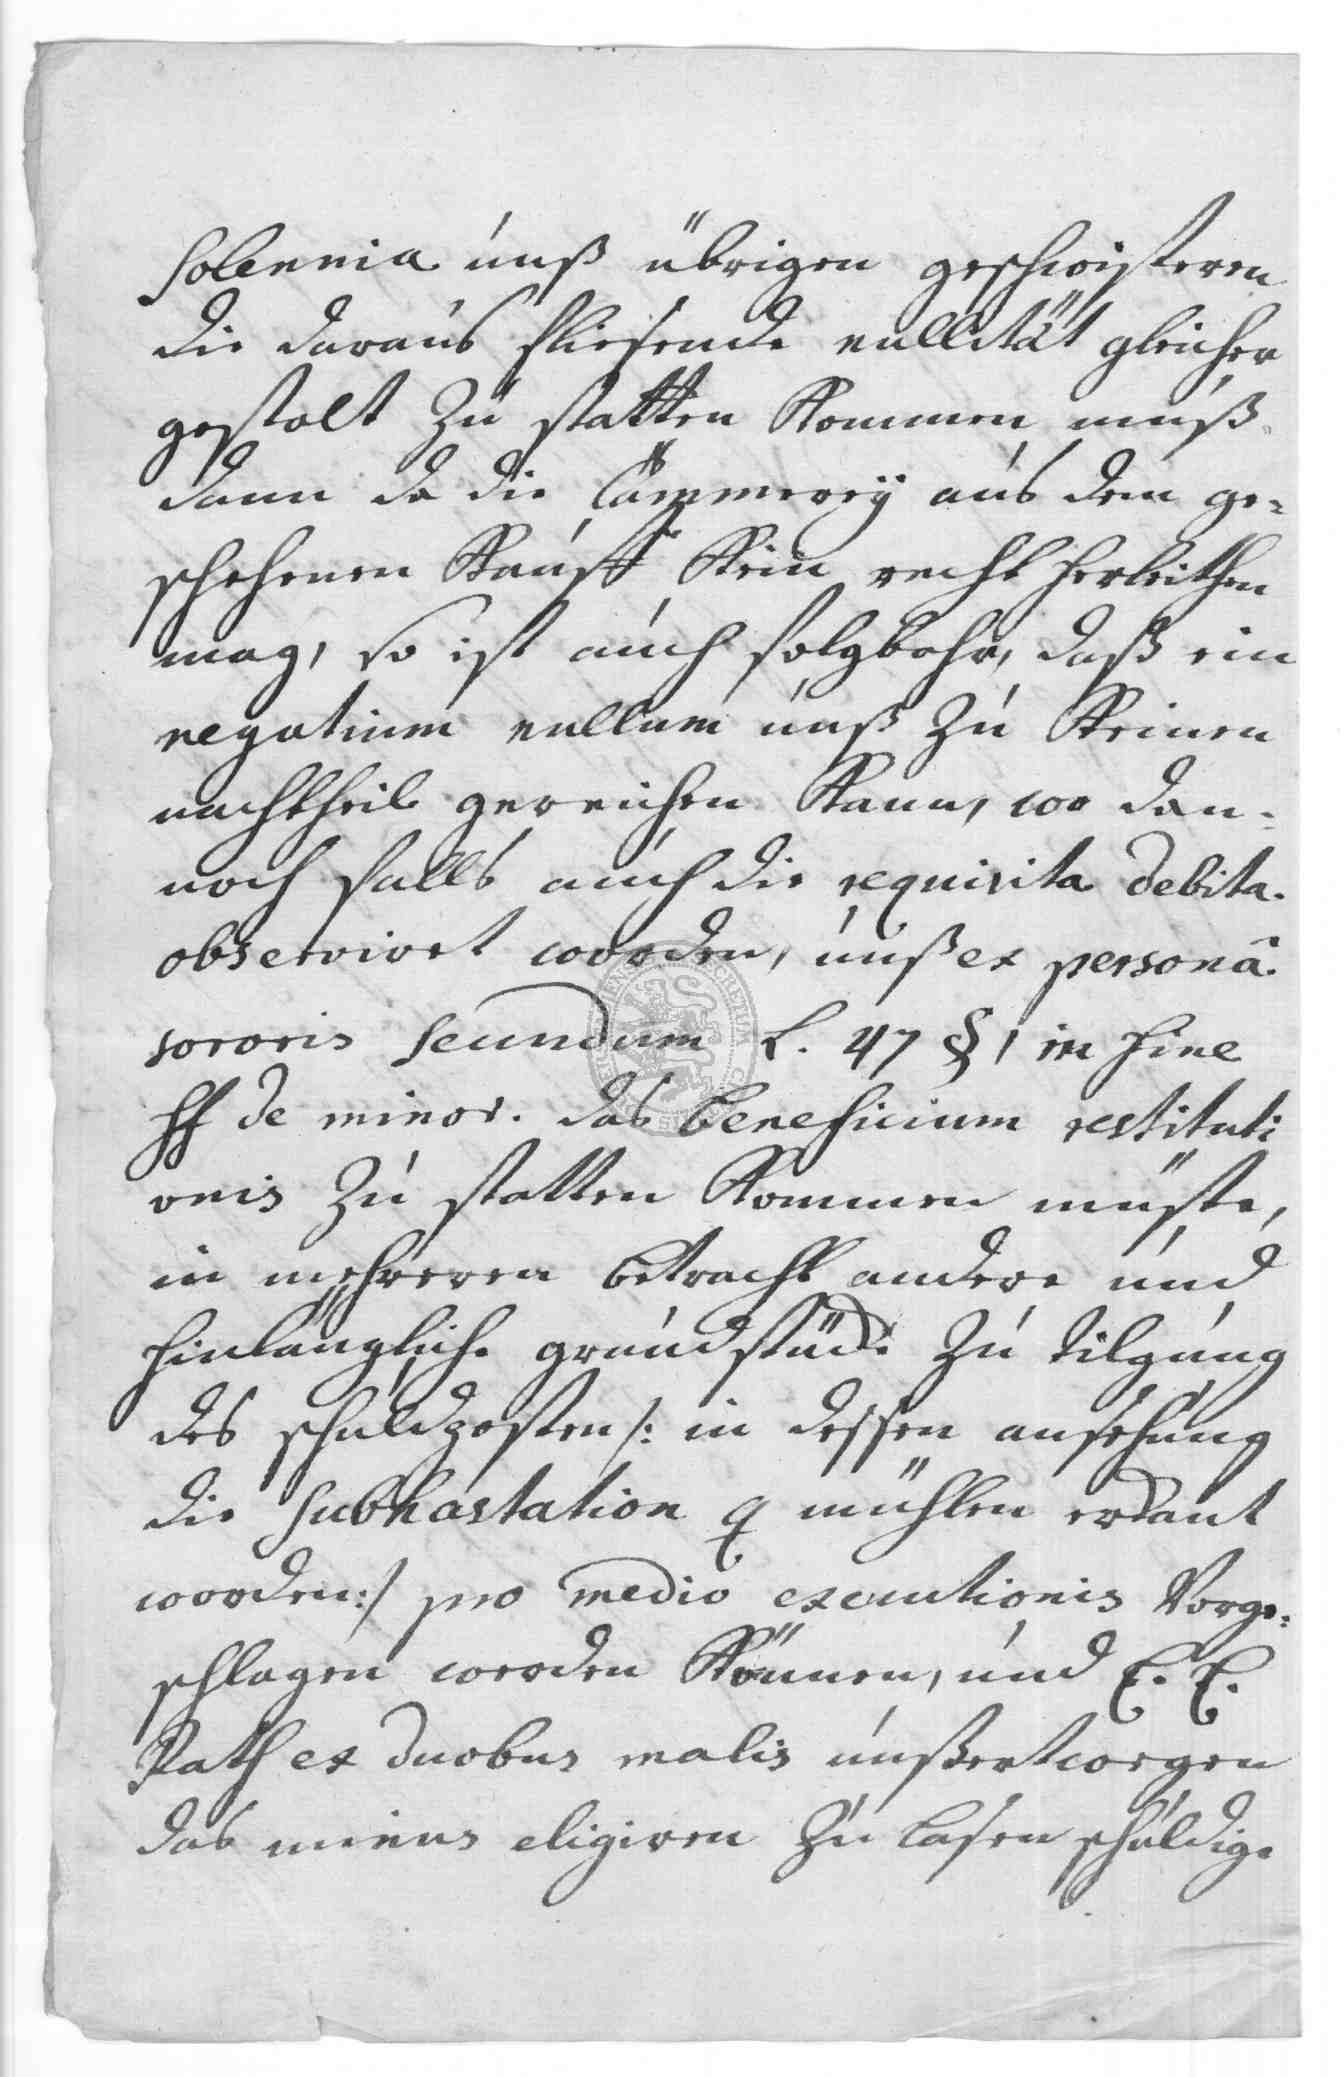 Solennia unß übrigen geschwisteren
die daraus fliesende nullität gleicher
gestalt Zu statten Kommen muß.
dann da die Cämmereÿ aus dem ge=
schehenen Kauff Kein recht herleithen
mag, so ist auch folgbahr, daß ein
negotium nullum unß Zu Keinen
nachtheil gereichen Kann, wo den=
noch falls auch die requisita debita
observiret worden, unß ex personâ
sororis secundum L. 47 § 1 in fine
ff de minor. das beneficium restituti
onis Zu statten Kommen müste,
in mehreren betracht andere und
hinlängliche grundstücke Zu tilgung
des schuldposten /: in dessen ansehung
die Subhastation q mühlen erkant
worden :/ pro medio executionis Vorge=
schlagen werden Können, und E. E.
Rath ex duobus malis unßertwegen
das minus eligiren Zu lasen schuldig